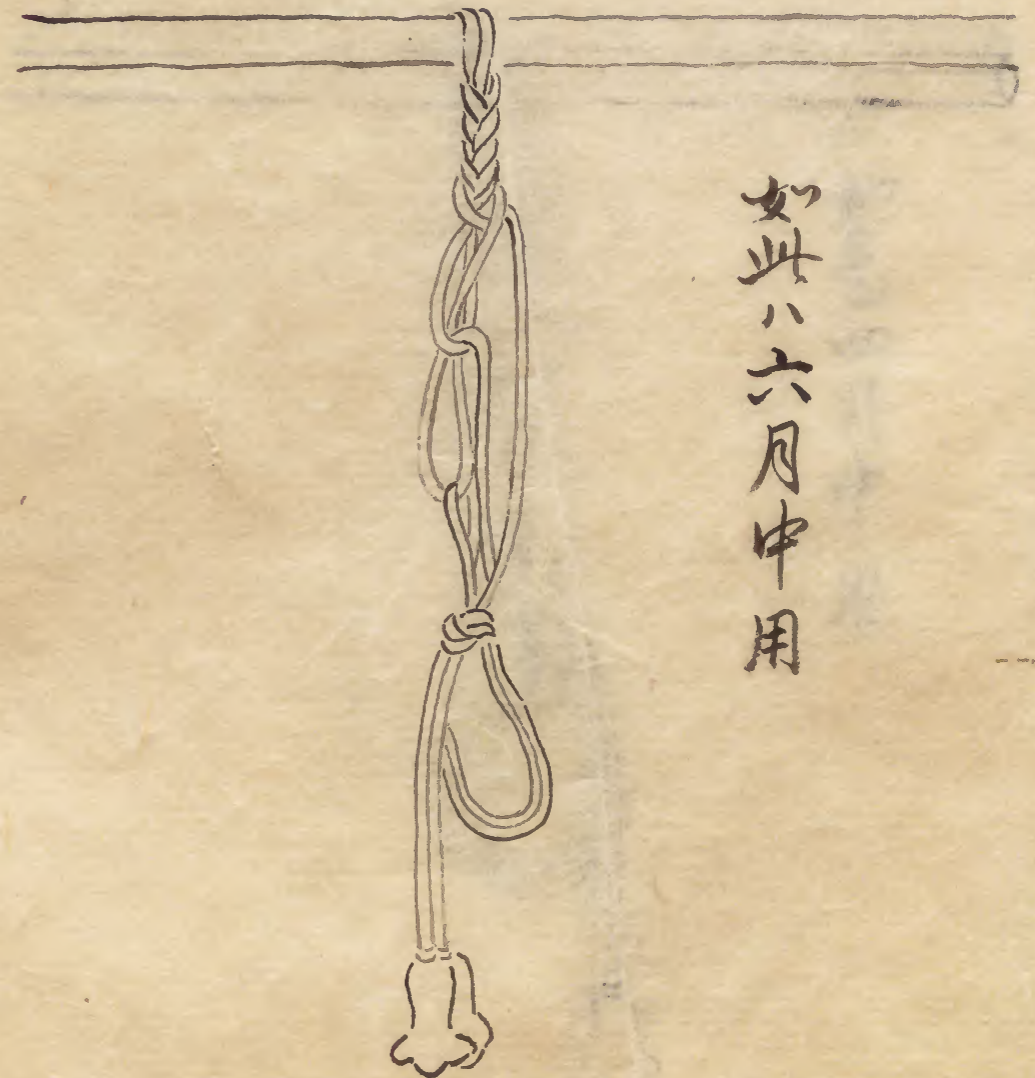 如此ハ六月中用